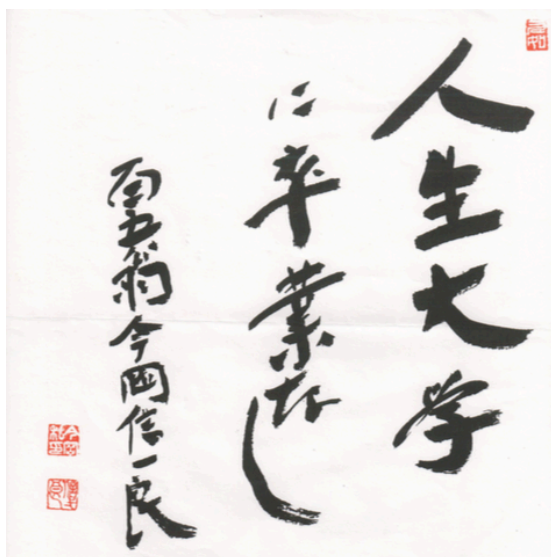 人生大学
に卒業なし
百五翁今岡信一良